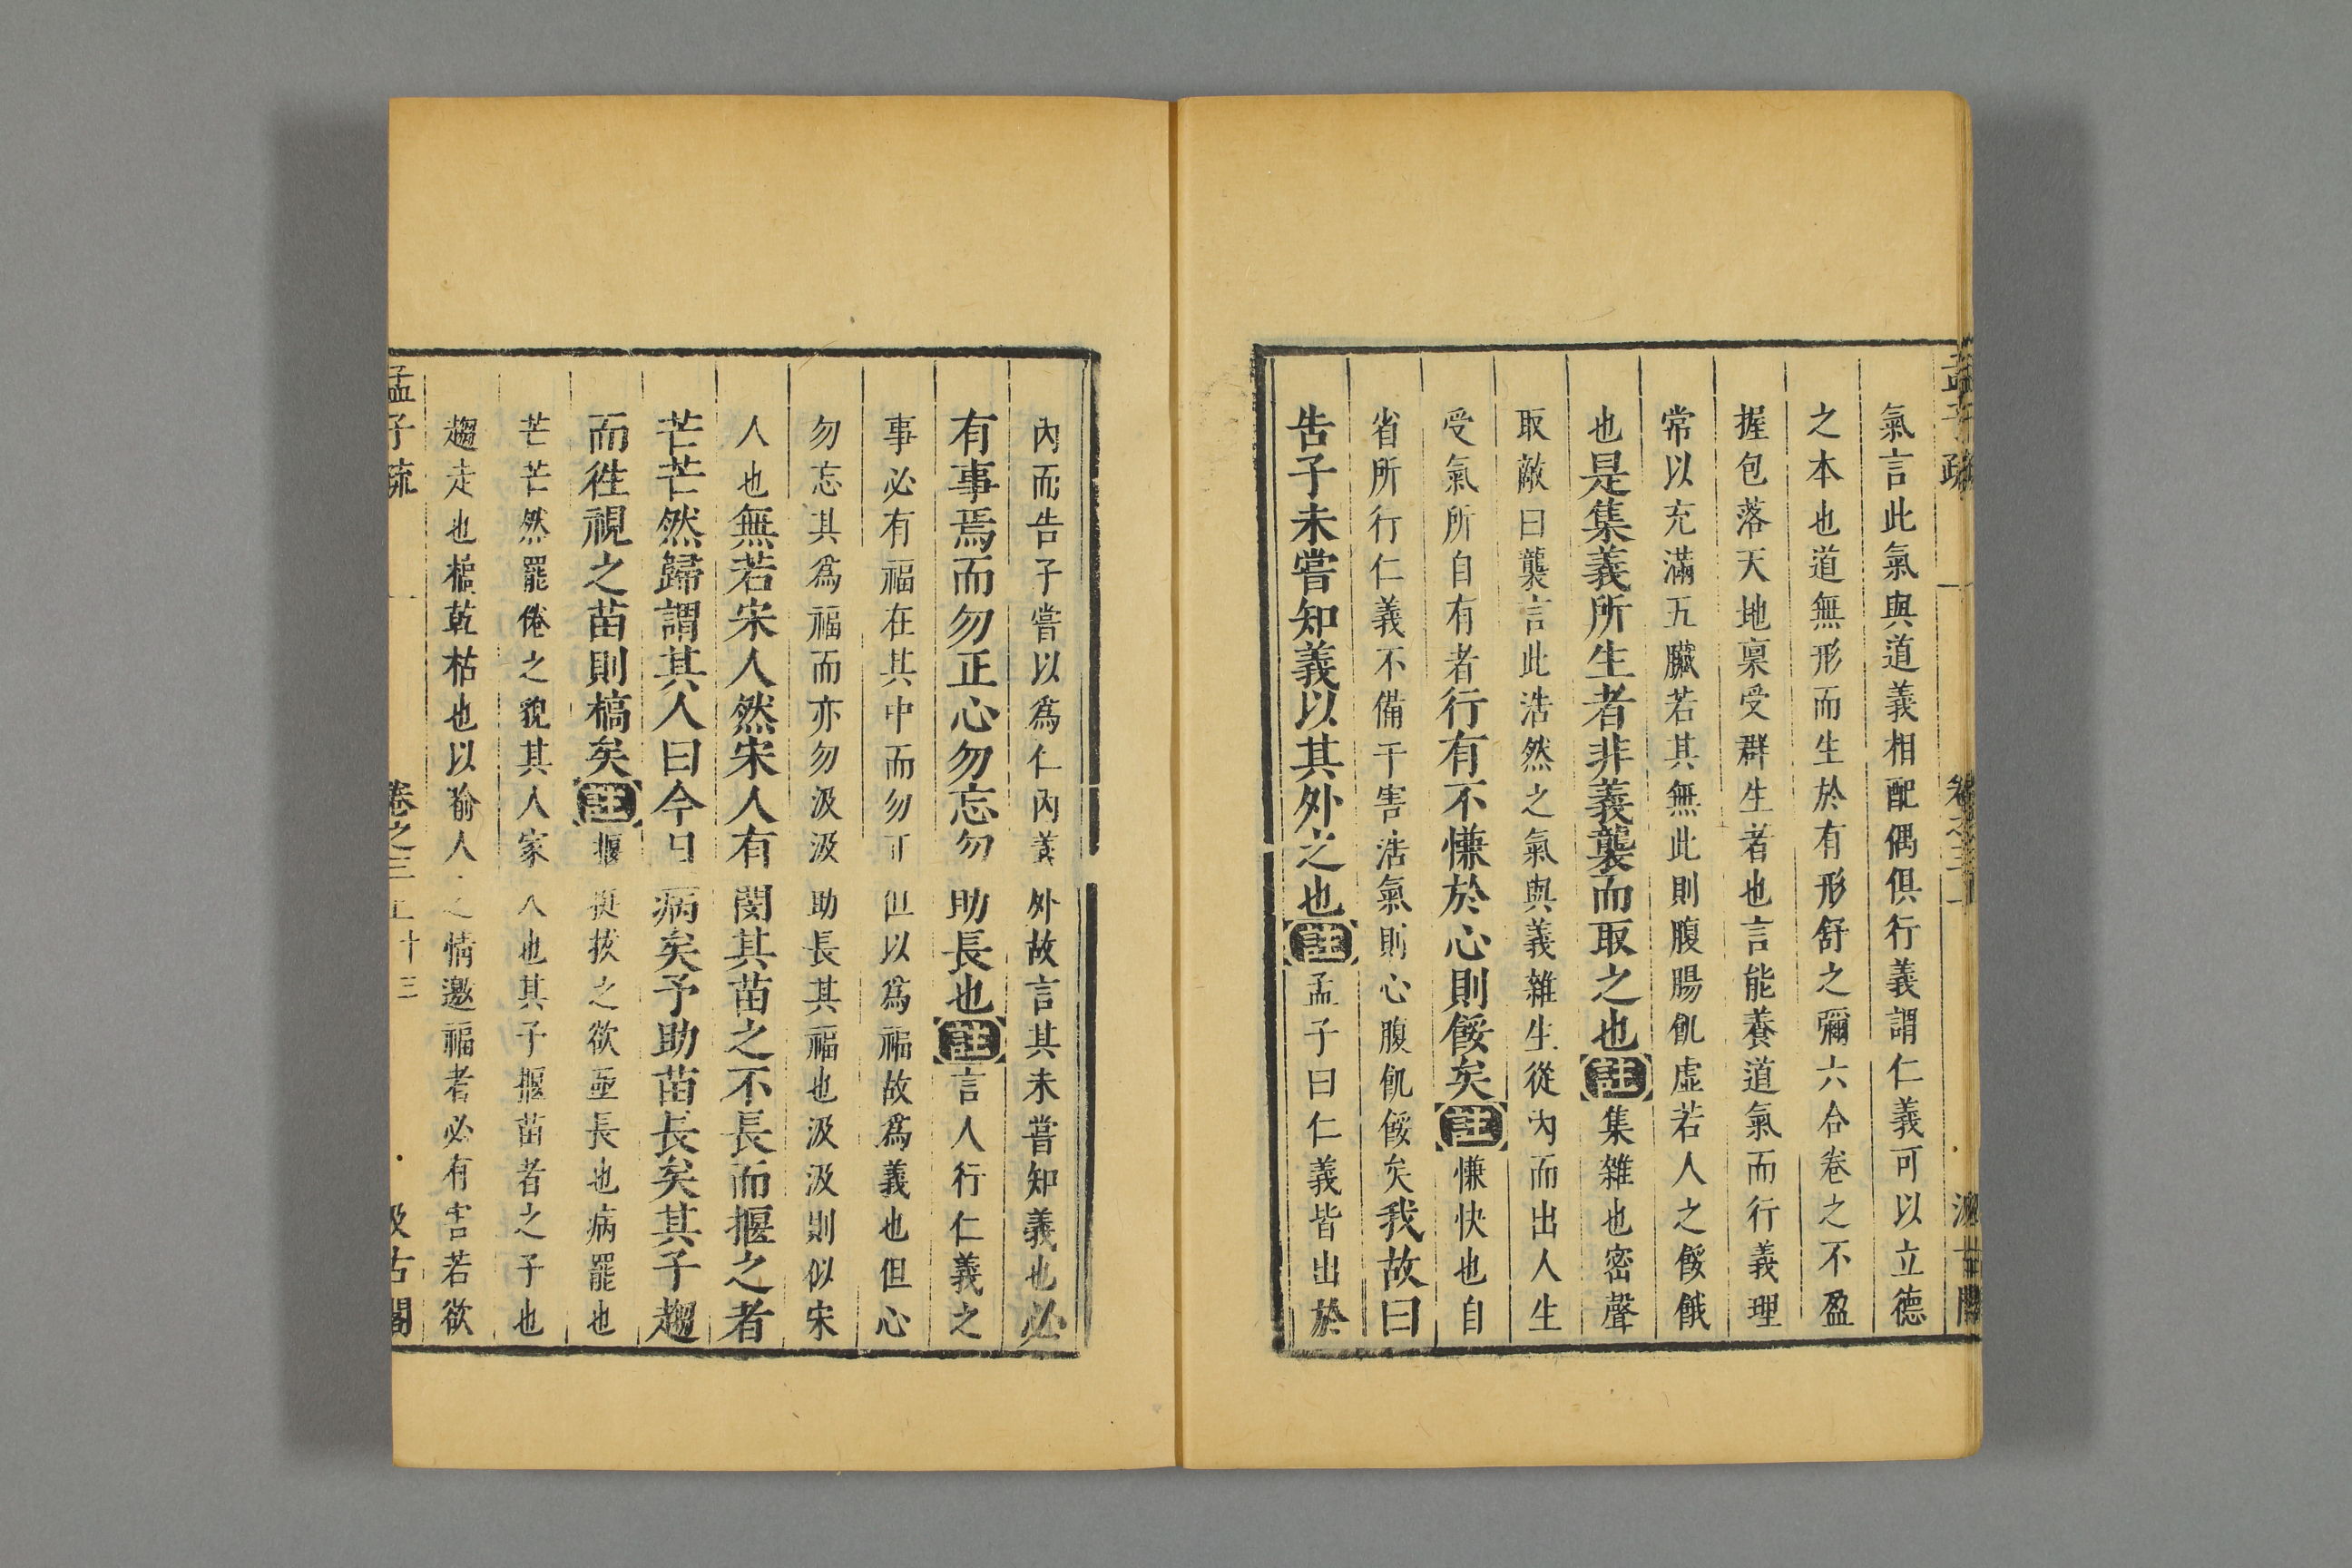 孟子疏 卷之三上
氣言此氣與道義相配偶俱行義謂仁義可以立德
之本也道無形而生於有形舒之彌六合卷之不盈
握包落天地稟受群生者也言能養道氣而行義理
常以充滿五臟若其無此則腹腸飢虛若人之餒餓
也是集義所生者非義襲而取之也註集雜也密聲
取敵曰襲言此浩然之氣與義雜生從內而出人生
受氣所自有者行有不慊於心則餒矣註慊快也自
省所行仁義不備干害浩氣則心腹飢餒矣我故曰
告子未嘗知義以其外之也註孟子曰仁義皆出於
內而告子嘗以為仁內義外故言其未嘗知義也必
有事焉而勿正心勿忘勿助長也註言人行仁義之
事必有福在其中而勿正但以為福故為義也但心
勿忘其為福而亦勿汲汲助長其福也汲汲則似宋
人也無若宋人然宋人有閔其苗之不長而揠之者
芒芒然歸謂其人曰今日病矣予助苗長矣其子趨
而徃視之苗則槁矣註揠挺拔之欲亟長也病罷也
芒芒然罷倦之貌其人家人也其子揠苗者之子也
趨走也槁乾枯也以喻人之情邀福者必有害若欲
孟子疏 卷之三上 十三 汲古閣